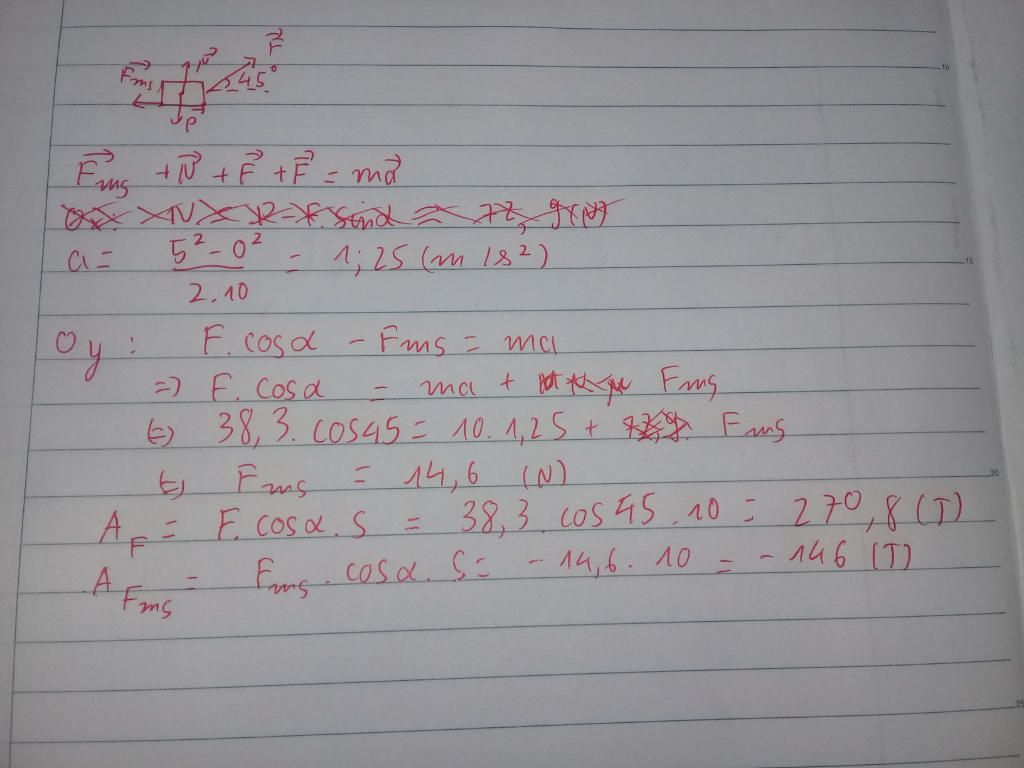 F⃗ms N⃗ F⃗ 45° P⃗
F⃗ms + N⃗ + F⃗ + F⃗ = ma⃗
a = (5² - 0²) / 2.10 = 1,25 (m/s²)
Oy: F.cosα - Fms = ma
=> F.cosα = ma + Fms
<=> 38,3.cos45 = 10.1,25 + Fms
<=> Fms = 14,6 (N)
A_F = F.cosα.S = 38,3.cos45.10 = 270,8 (T)
A_Fms = Fms.cosα.S = -14,6.10 = -146 (T)